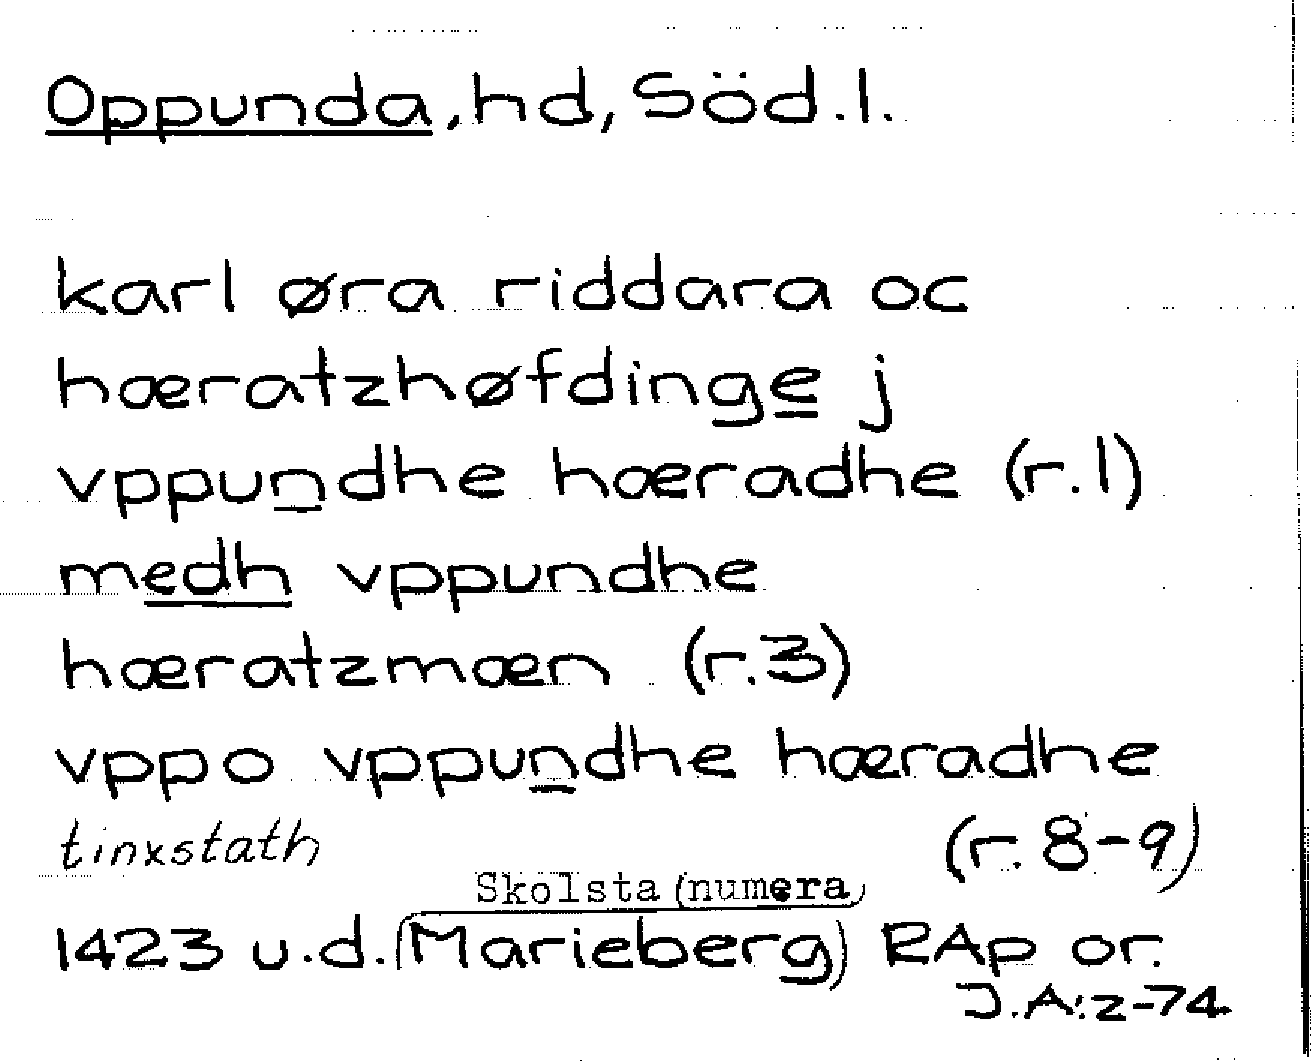 Oppunda, hd, Söd. l.
karl øra riddara oc
hæratzhøfdinge j
vppundhe hæradhe (r. 1)
medh vppundhe
hæratzmæn (r. 3)
vppo vppundhe hæradhe
tinxstath (r. 8-9)
Skolsta (numera
1423 u.d. (Marieberg) RAp or.
J.A:z-74